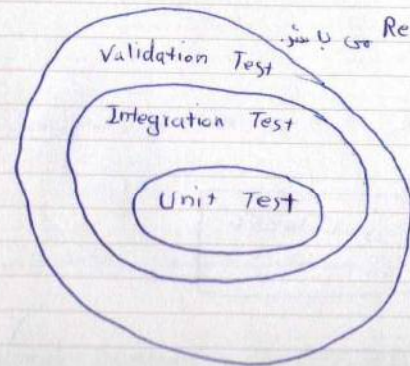 Re می باشد.
Validation Test
Integration Test
Unit Test